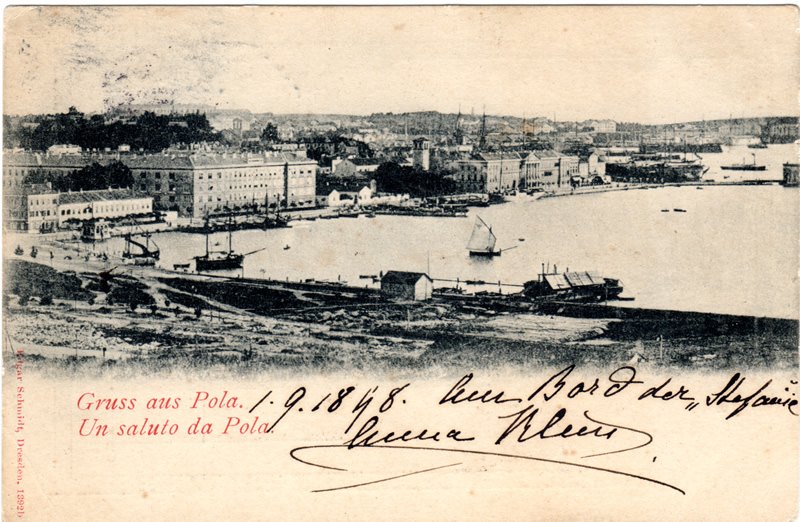 Gruss aus Pola.
Un saluto da Pola
1.9.1898. Am Bord der „Stefanie
Anna Klein
Edgar Schmidt, Dresden,